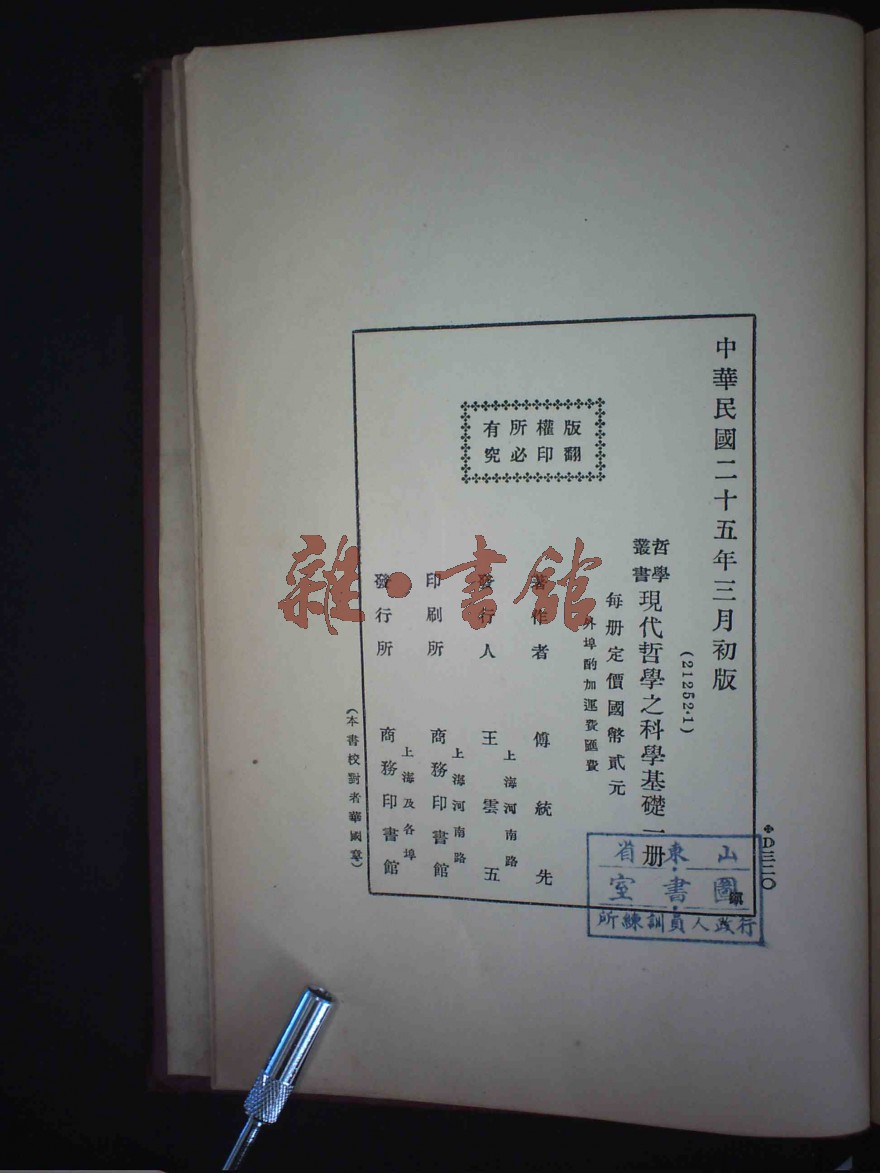 中華民國二十五年三月初版
✤D三二〇
(21252·1)
哲學叢書
現代哲學之科學基礎一册
每册定價國幣貳元
外埠酌加運費匯費
版權所有
翻印必究
著作者 傅統先
發行人 王雲五
上海河南路
印刷所 商務印書館
上海河南路
發行所 商務印書館
上海及各埠
(本書校對者華國章)
山東省
圖書室
行政人員訓練所
雜·書館